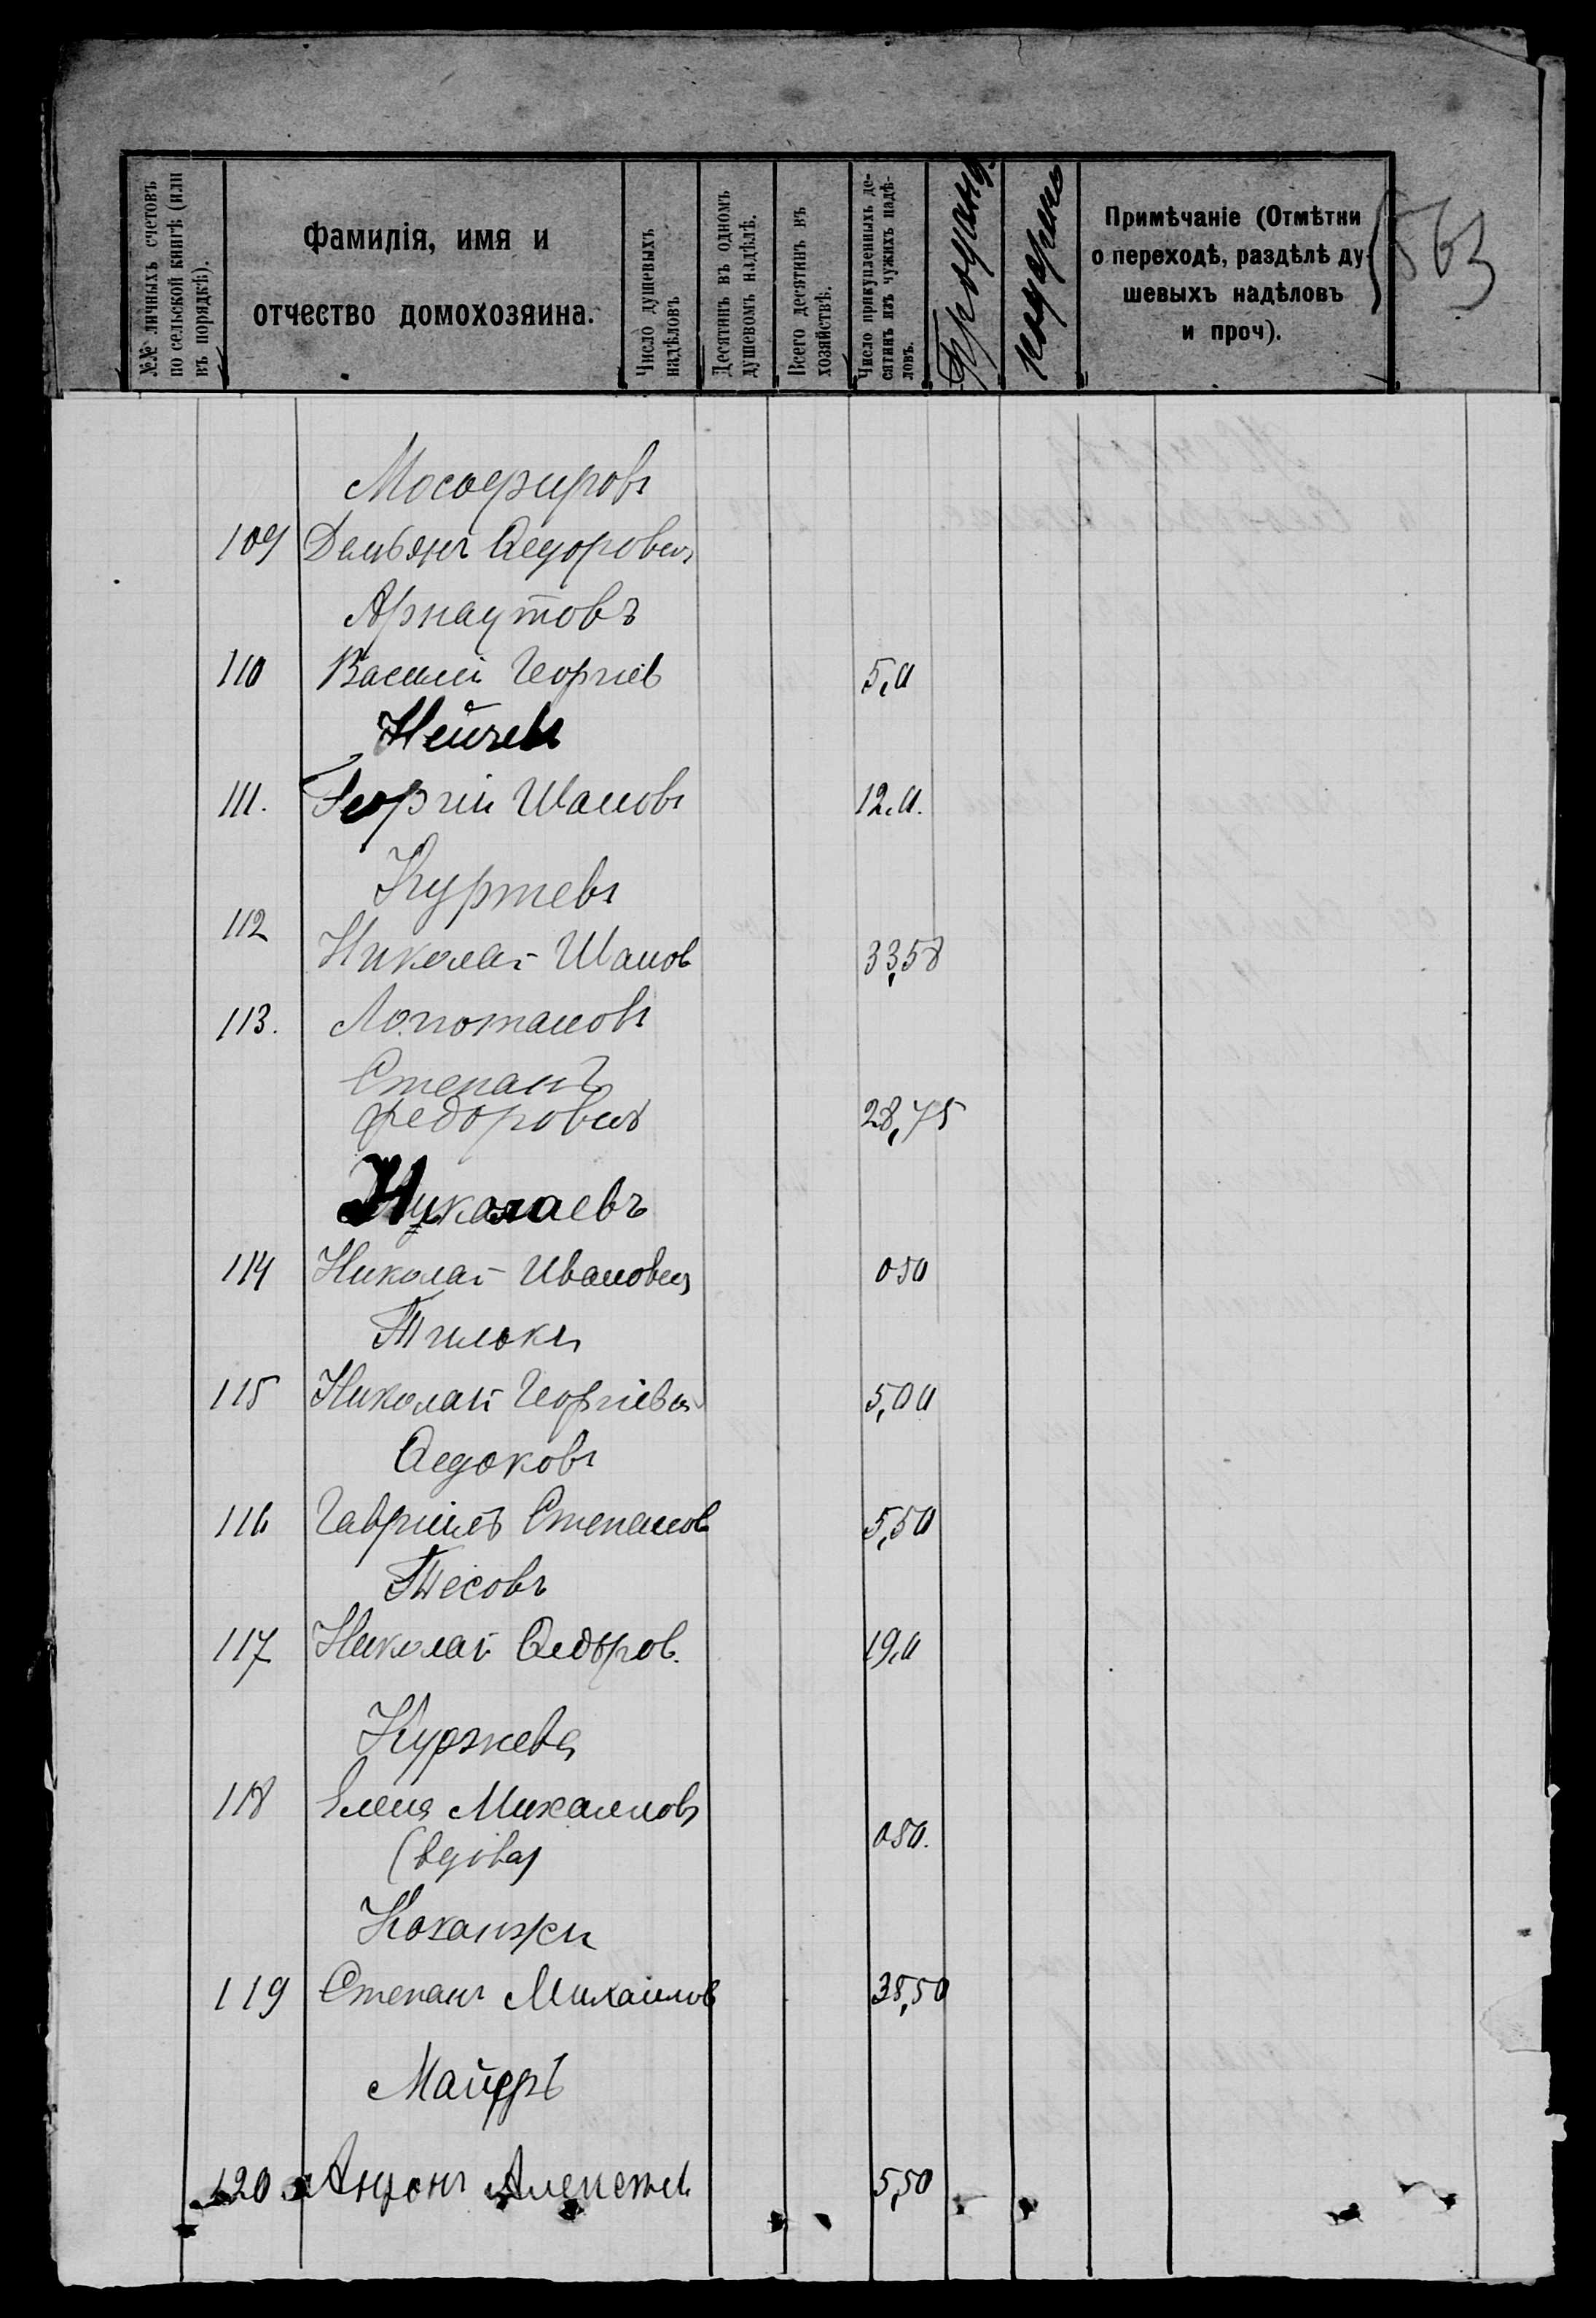 №№ личныхъ счетовъ
по сельской книгѣ (или
въ порядкѣ).
Фамилія, имя и
отчество домохозяина.
Число душевыхъ
надѣловъ
Десятинъ въ одномъ
душевомъ надѣлѣ.
Всего десятинъ въ
хозяйствѣ.
Число прикупленныхъ де-
сятинъ изъ чужихъ надѣ-
ловъ.
Примѣчаніе (Отмѣтки
о переходѣ, раздѣлѣ ду-
шевыхъ надѣловъ
и проч).
563
Мосафировъ
109 Демьянъ Ѳедоровичъ
Арнаутовъ
110 Василій Георгіев 5,0
Нейчевъ
111. Георгій Иванов 12.0.
Куртевъ
112
Николай Иванов 33,58
113.
Степанъ
Федорович 28,75
Николаевъ
114 Николай Иванович 050
115 Николай Георгіевич 5,00
Ѳедоковъ
116 Гавріилъ Степанов 5,50
Тесовъ
117 Николай Ѳедоров. 19,0
Куржева
118 Елена Михаилов
(вдова) 050.
119 Степанъ Михаилов 38,50
120 Антонъ Алексеев 5,50